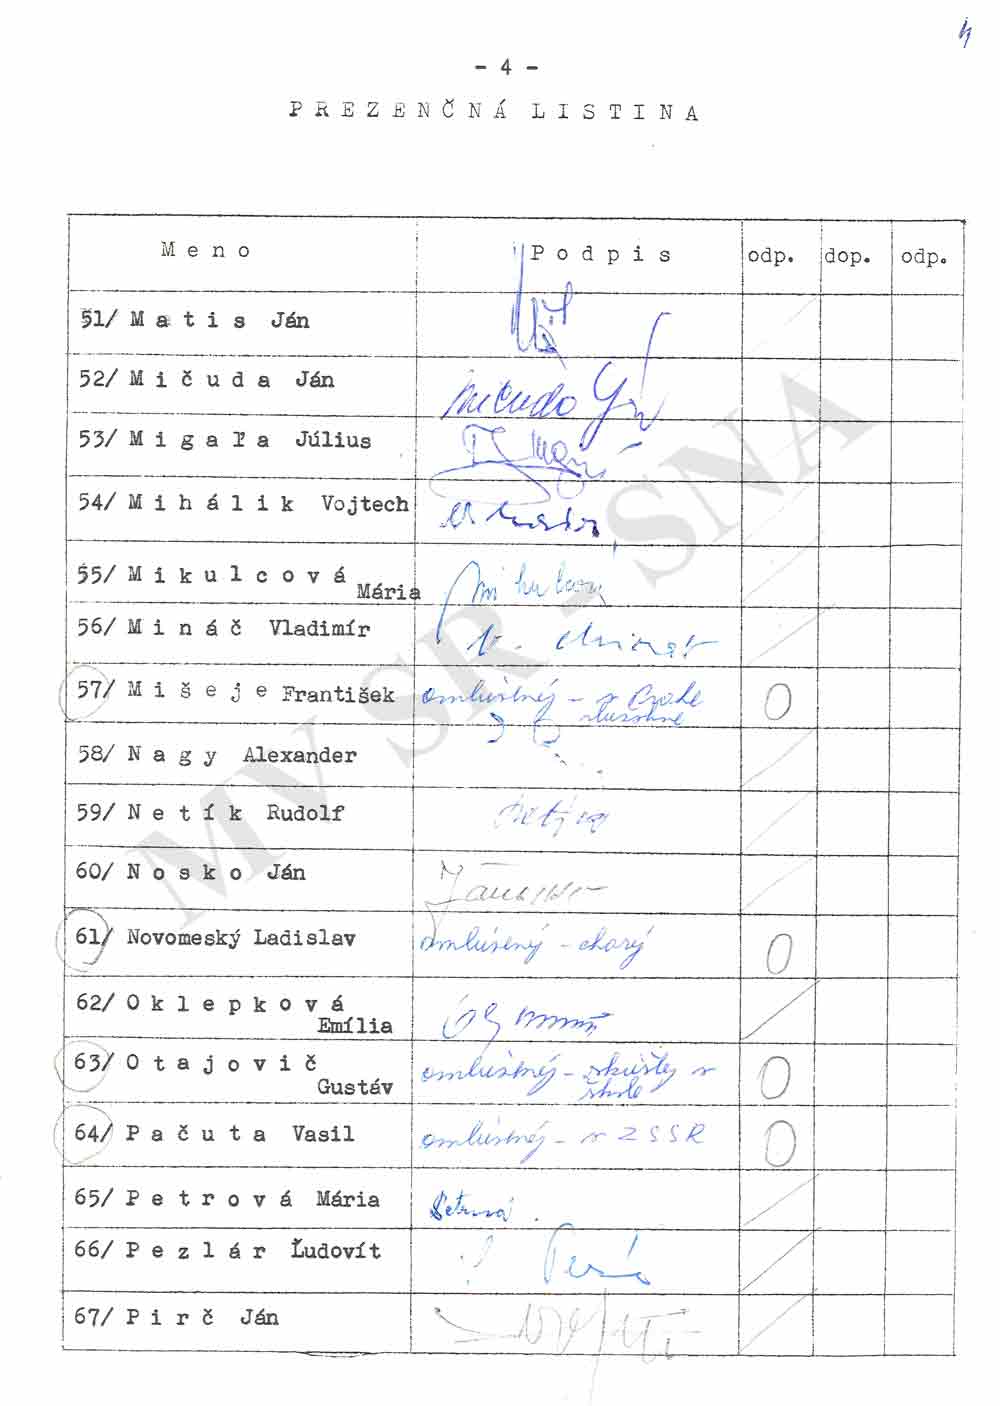 4
- 4 -
PREZENČNÁ LISTINA
Meno Podpis odp. dop. odp.
51/ Matis Ján
52/ Mičuda Ján Mičuda Ján
53/ Migaľa Július
54/ Mihálik Vojtech
55/ Mikulcová
Mária
56/ Mináč Vladimír V. Mináč
57/ Mišeje František omluvený - v Prahe
služobne
58/ Nagy Alexander
59/ Netík Rudolf
60/ Nosko Ján
61/ Novomeský Ladislav omluvený - chorý
62/ Oklepková
Emília
63/ Otajovič omluvený - skúšky v
Gustáv škole
64/ Pačuta Vasil omluvený - v ZSSR
65/ Petrová Mária Petrová
66/ Pezlár Ľudovít
67/ Pirč Ján
MV SR - SNA